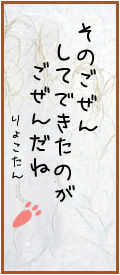 そのごぜん
してできたのが
ごぜんだね
りょこたん